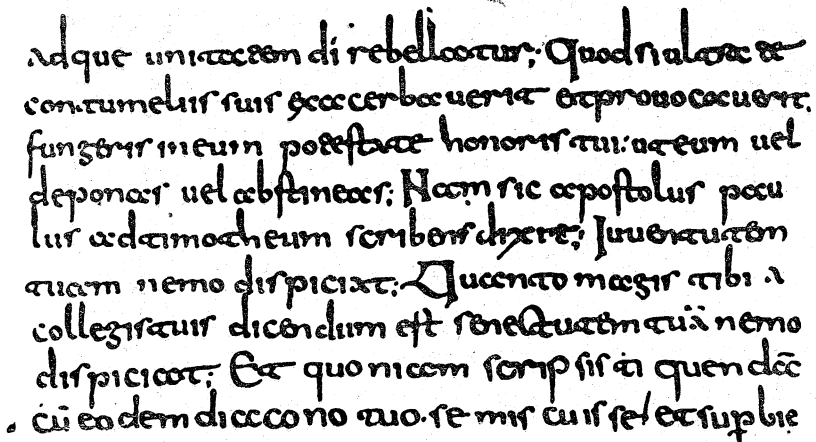 Adque unitatem di rebellatur; Quod si ultra te
contumeliis suis exacerbauerit et prouocauerit.
fungeris in eum potestate honoris tui: ut eum uel
deponas uel abstineas; Nam sic apostolus pau
lus ad timotheum scribens dixere; Juuentutem
tuam nemo dispiciat; Quanto magis tibi a
collegis tuis dicendum est senectutem tuā nemo
dispiciat; Et quoniam scripsisti quendā
cū eodem diacono tuo. se miscuisse/ et superbie